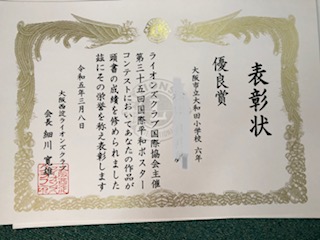 表彰状
優良賞
大阪市立大和田小学校 六年
ライオンズクラブ国際協会主催
第三十五回国際平和ポスター
コンテストにおいてあなたの作品が
頭書の成績を修められました
茲にその栄誉を称え表彰します
令和五年三月八日
大阪西淀ライオンズクラブ
会長 細川 寛雄